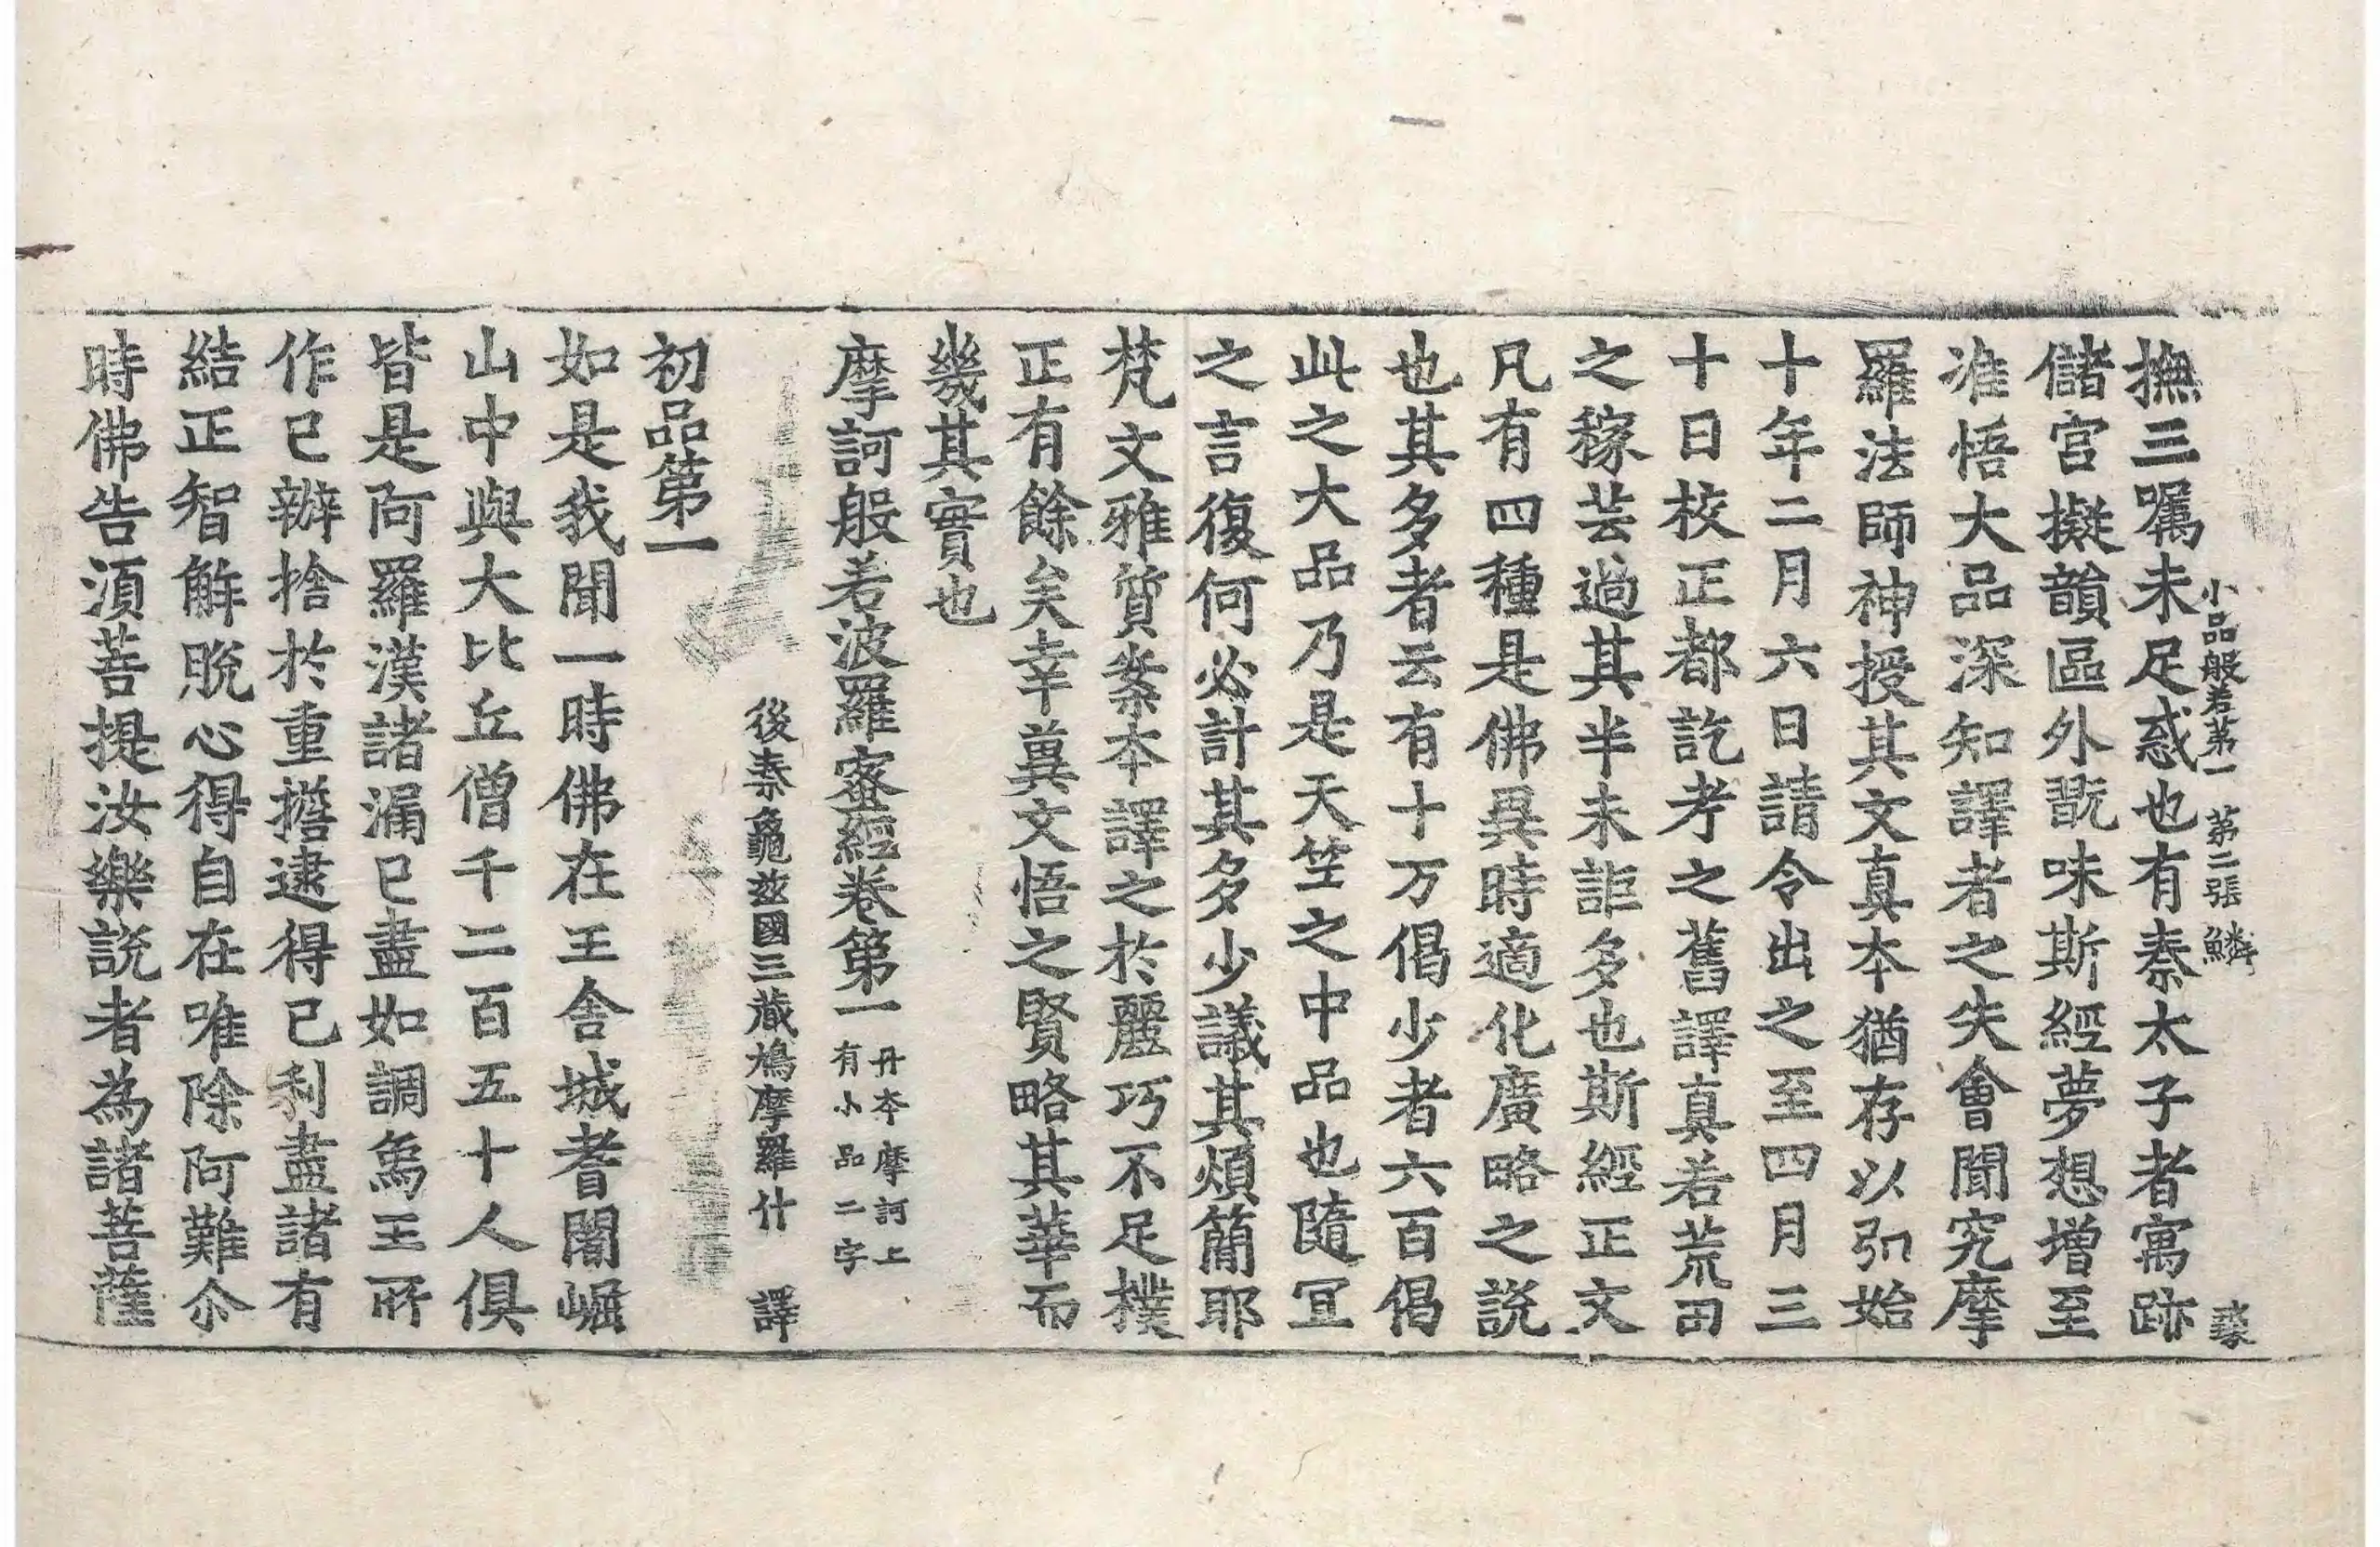 小品般若第一　第二張　鱗
彖
撫三囑未足惑也有秦太子者寓跡
儲宮擬韻區外翫味斯經夢想增至
准悟大品深知譯者之失會聞究摩
羅法師神授其文真本猶存以弘始
十年二月六日請令出之至四月三
十日校正都訖考之舊譯真若荒田
之稼芸過其半未詎多也斯經正文
凡有四種是佛異時適化廣略之說
也其多者云有十万偈少者六百偈
此之大品乃是天竺之中品也隨冝
之言復何必計其多少議其煩簡耶
梵文雅質案本譯之於麗巧不足樸
正有餘矣幸冀文悟之賢略其華而
幾其實也
摩訶般若波羅蜜經卷第一
丹本摩訶上
有小品二字
後秦龜玆國三藏鳩摩羅什　譯
初品第一
如是我聞一時佛在王舍城耆闍崛
山中與大比丘僧千二百五十人俱
皆是阿羅漢諸漏已盡如調象王所
作已辦捨於重擔逮得已利盡諸有
結正智解脫心得自在唯除阿難尒
時佛告須菩提汝樂說者為諸菩薩